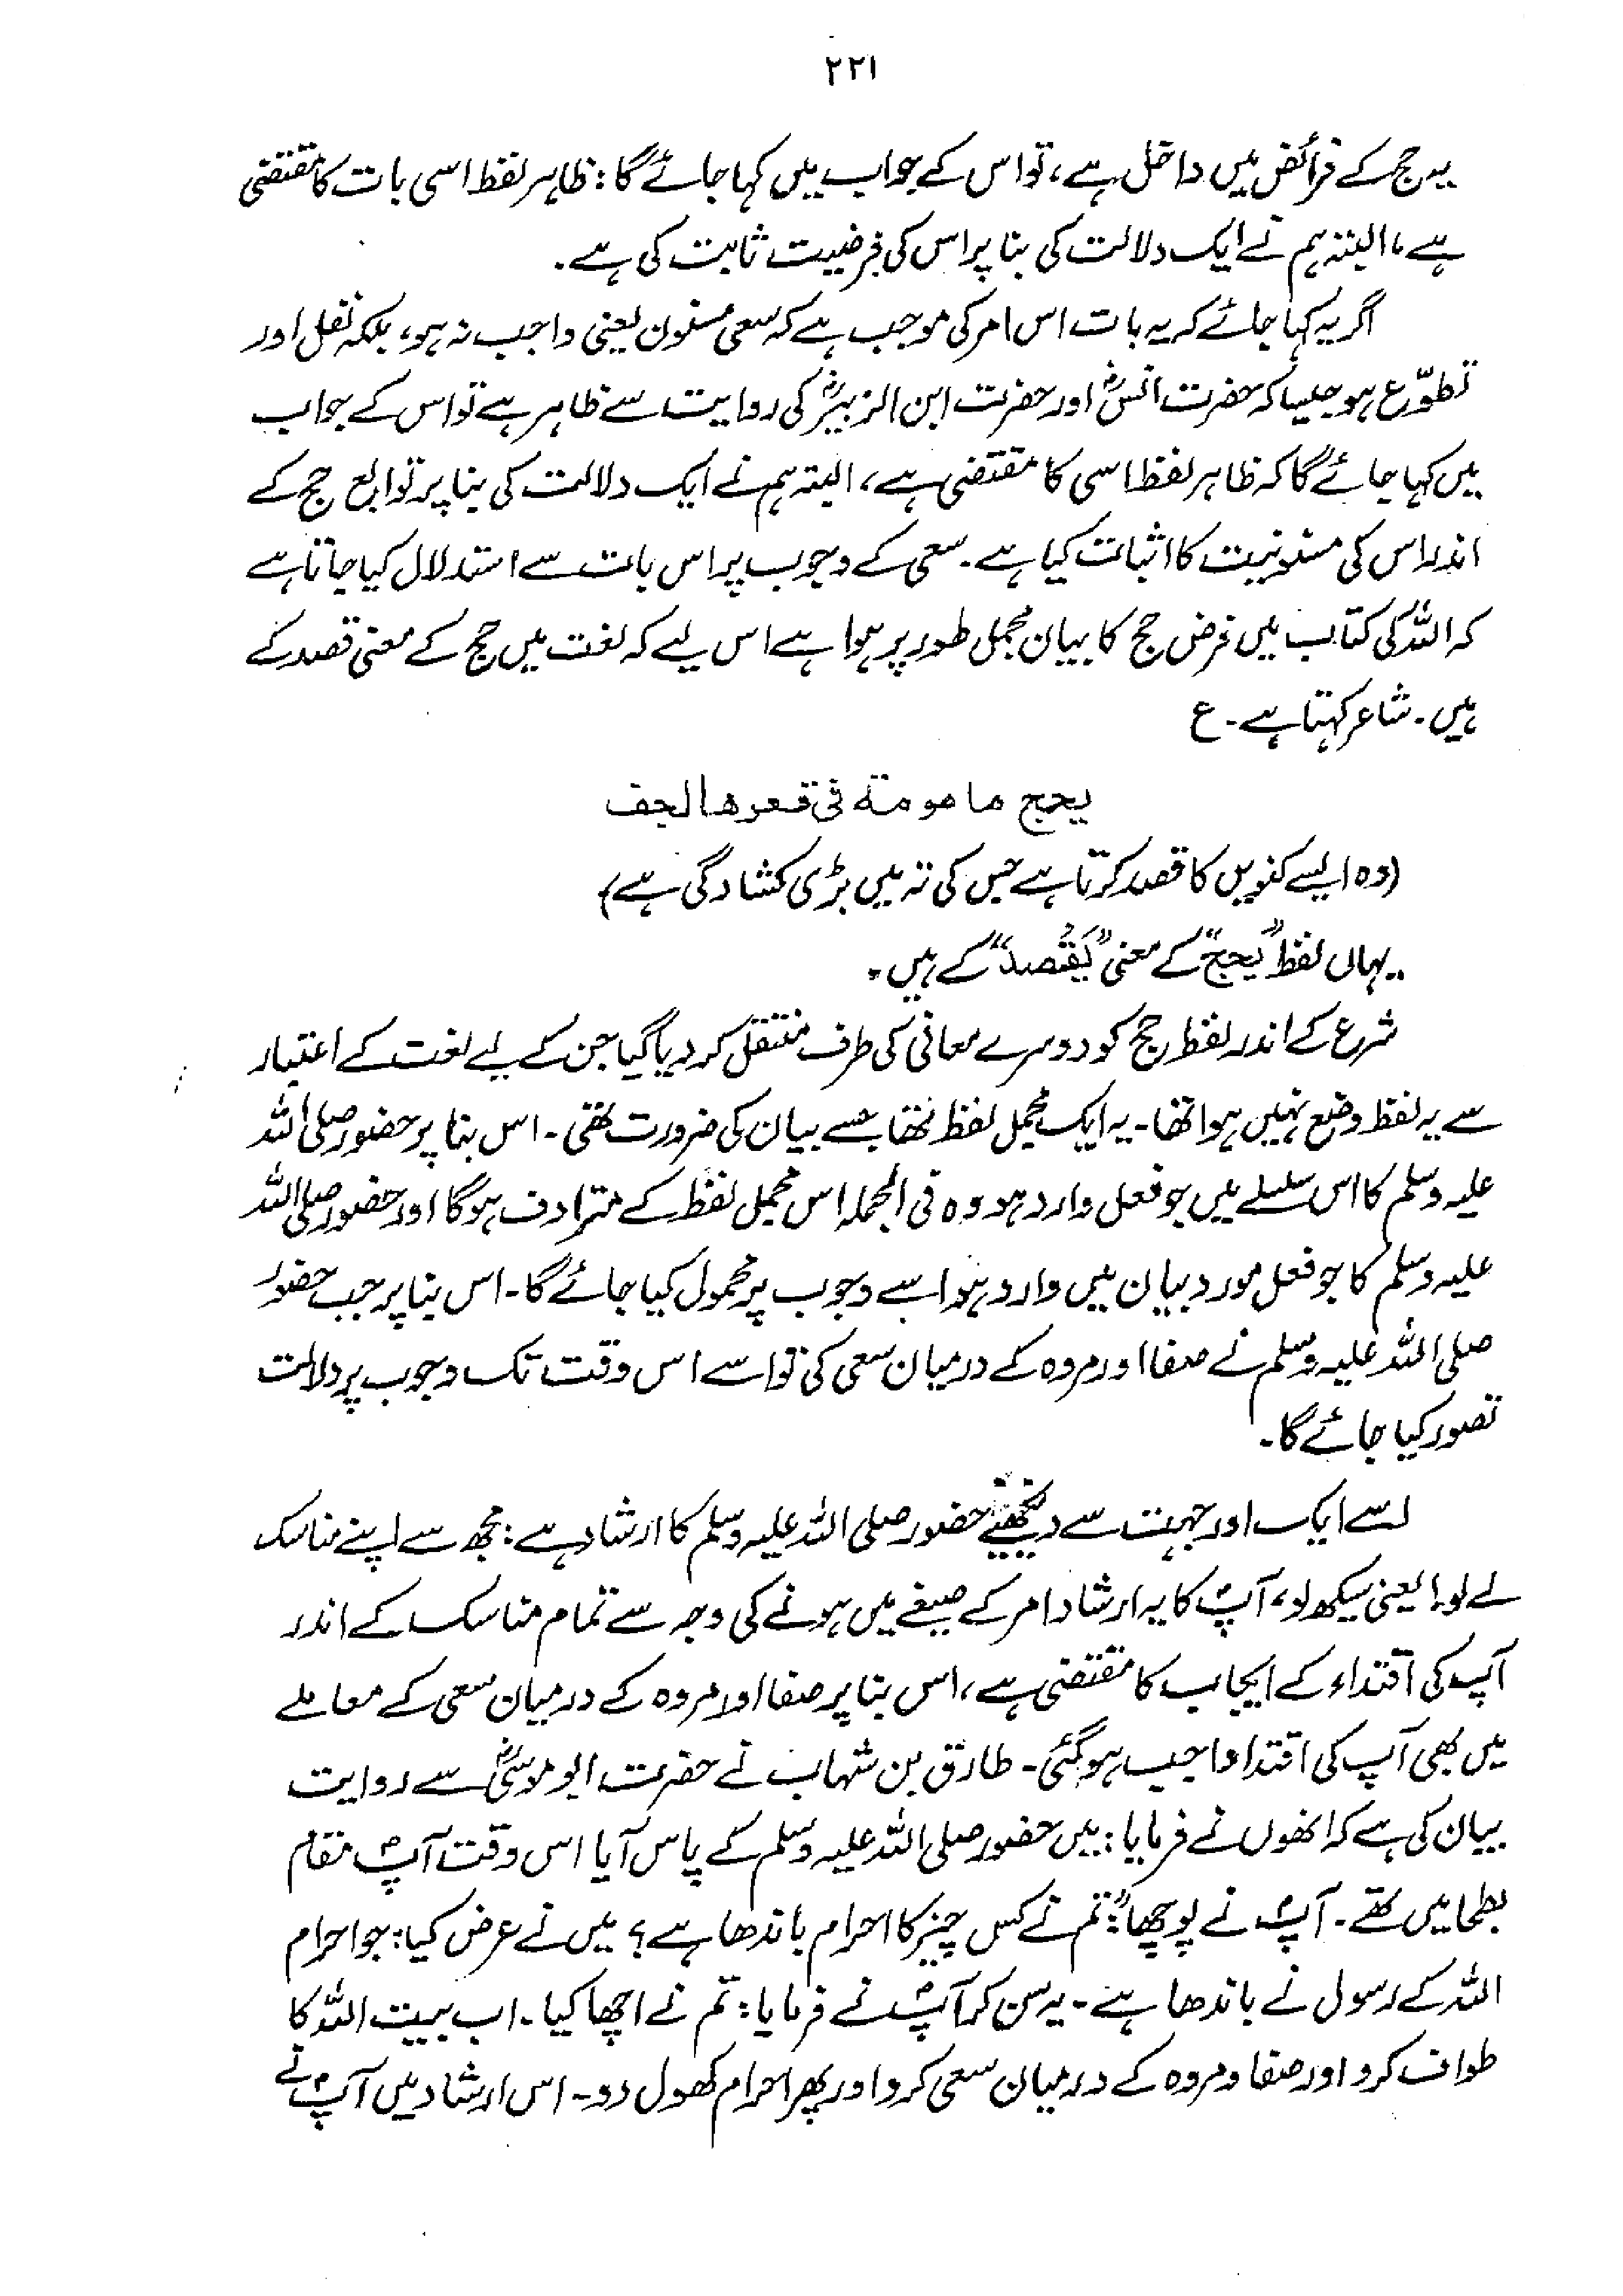 ۲۲۱
یہ حج کے فرائض میں داخل ہے، تو اس کے جواب میں کہا جائے گا: ظاہر لفظ اسی بات کا مقتضی
ہے، البتہ ہم نے ایک دلالت کی بنا پر اس کی فرضیت ثابت کی ہے۔
اگر یہ کہا جائے کہ یہ بات اس امر کی موجب ہے کہ سعی مسنون یعنی واجب نہ ہو، بلکہ نفل اور
تطوّع ہو جیسا کہ حضرت انسؓ اور حضرت ابن الزبیرؓ کی روایت سے ظاہر ہے تو اس کے جواب
میں کہا جائے گا کہ ظاہر لفظ اسی کا مقتضی ہے، البتہ ہم نے ایک دلالت کی بنا پر توابع حج کے
اندر اس کی مسنونیت کا اثبات کیا ہے۔ سعی کے وجوب پر اس بات سے استدلال کیا جاتا ہے
کہ اللہ کی کتاب میں فرض حج کا بیان مجمل طور پر ہوا ہے اس لیے کہ لغت میں حج کے معنی قصد کے
ہیں۔ شاعر کہتا ہے۔ ع
یحج مامومة فی قعرها لجف
(وہ ایسے کنویں کا قصد کرتا ہے جس کی تہ میں بڑی کشادگی ہے)
یہاں لفظ "یحج" کے معنی "یَقْصِدُ" کے ہیں۔
شرع کے اندر لفظ حج کو دوسرے معانی کی طرف منتقل کر دیا گیا جن کے لیے لغت کے اعتبار
سے یہ لفظ وضع نہیں ہوا تھا۔ یہ ایک مجمل لفظ تھا جسے بیان کی ضرورت تھی۔ اس بنا پر حضور صلی اللہ
علیہ وسلم کا اس سلسلے میں جو فعل وارد ہو وہ فی الجملہ اس مجمل لفظ کے مترادف ہوگا اور حضور صلی اللہ
علیہ وسلم کا جو فعل مورد بیان میں وارد ہو اسے وجوب پر محمول کیا جائے گا۔ اس بنا پر جب حضور
صلی اللہ علیہ وسلم نے صفا اور مروہ کے درمیان سعی کی تو اسے اس وقت تک وجوب پر دلالت
تصور کیا جائے گا۔
اسے ایک اور جہت سے دیکھیے حضور صلی اللہ علیہ وسلم کا ارشاد ہے: مجھ سے اپنے مناسک
لے لو! یعنی سیکھ لو، آپؐ کا یہ ارشاد امر کے صیغے میں ہونے کی وجہ سے تمام مناسک کے اندر
آپ کی اقتداء کے ایجاب کا مقتضی ہے، اس بنا پر صفا اور مروہ کے درمیان سعی کے معاملے
میں بھی آپ کی اقتدا واجب ہو گئی۔ طارق بن شہاب نے حضرت ابو موسیٰؓ سے روایت
بیان کی ہے کہ انھوں نے فرمایا: میں حضور صلی اللہ علیہ وسلم کے پاس آیا اس وقت آپؐ مقام
بطحا میں تھے۔ آپؐ نے پوچھا: "تم نے کس چیز کا احرام باندھا ہے؟ میں نے عرض کیا: جو احرام
اللہ کے رسول نے باندھا ہے۔ یہ سن کر آپؐ نے فرمایا: تم نے اچھا کیا۔ اب بیت اللہ کا
طواف کرو اور صفا و مروہ کے درمیان سعی کرو اور پھر احرام کھول دو۔ اس ارشاد میں آپؐ نے